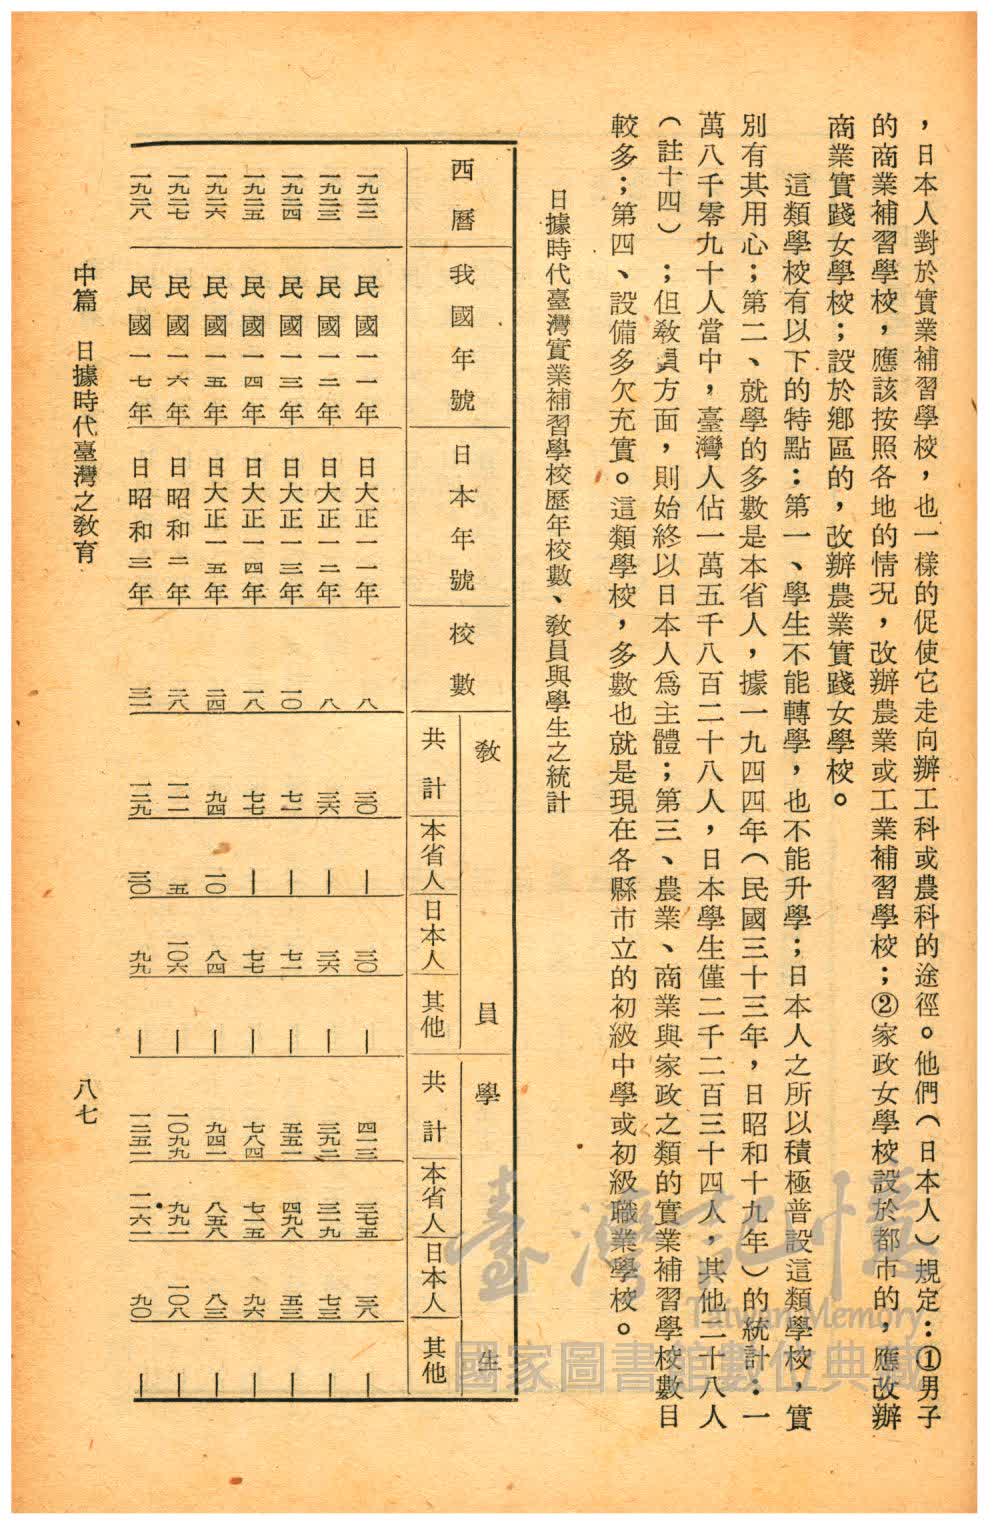 ，日本人對於實業補習學校，也一樣的促使它走向辦工科或農科的途徑。他們（日本人）規定：①男子
的商業補習學校，應該按照各地的情況，改辦農業或工業補習學校；②家政女學校設於都市的，應改辦
商業實踐女學校；設於鄉區的，改辦農業實踐女學校。
這類學校有以下的特點：第一、學生不能轉學，也不能升學；日本人之所以積極普設這類學校，實
別有其用心；第二、就學的多數是本省人，據一九四四年（民國三十三年，日昭和十九年）的統計：一
萬八千零九十人當中，臺灣人佔一萬五千八百二十八人，日本學生僅二千二百三十四人，其他二十八人
（註十四）；但教員方面，則始終以日本人爲主體；第三、農業、商業與家政之類的實業補習學校數目
較多；第四、設備多欠充實。這類學校，多數也就是現在各縣市立的初級中學或初級職業學校。
日據時代臺灣實業補習學校歷年校數、教員與學生之統計
西曆 我國年號 日本年號 校數 教員 學生
共計 本省人 日本人 其他 共計 本省人 日本人 其他
一九二二 民國一一年 日大正一一年 八 三〇 — 三〇 — 四一三 三七五 三八 —
一九二三 民國一二年 日大正一二年 八 三六 — 三六 — 三九二 三一九 七三 —
一九二四 民國一三年 日大正一三年 一〇 七一 — 七一 — 五五一 四九八 五三 —
一九二五 民國一四年 日大正一四年 一八 七七 — 七七 — 七八四 七一五 九六 —
一九二六 民國一五年 日大正一五年 二四 九四 一〇 八四 — 九四一 八五八 八三 —
一九二七 民國一六年 日昭和二年 二八 一一一 五 一〇六 — 一〇九九 九九一 一〇八 —
一九二八 民國一七年 日昭和三年 三一 一二九 三〇 九九 — 一二五一 一一六一 九〇 —
中篇 日據時代臺灣之教育
八七
臺灣記憶
Taiwan Memory
國家圖書館數位典藏